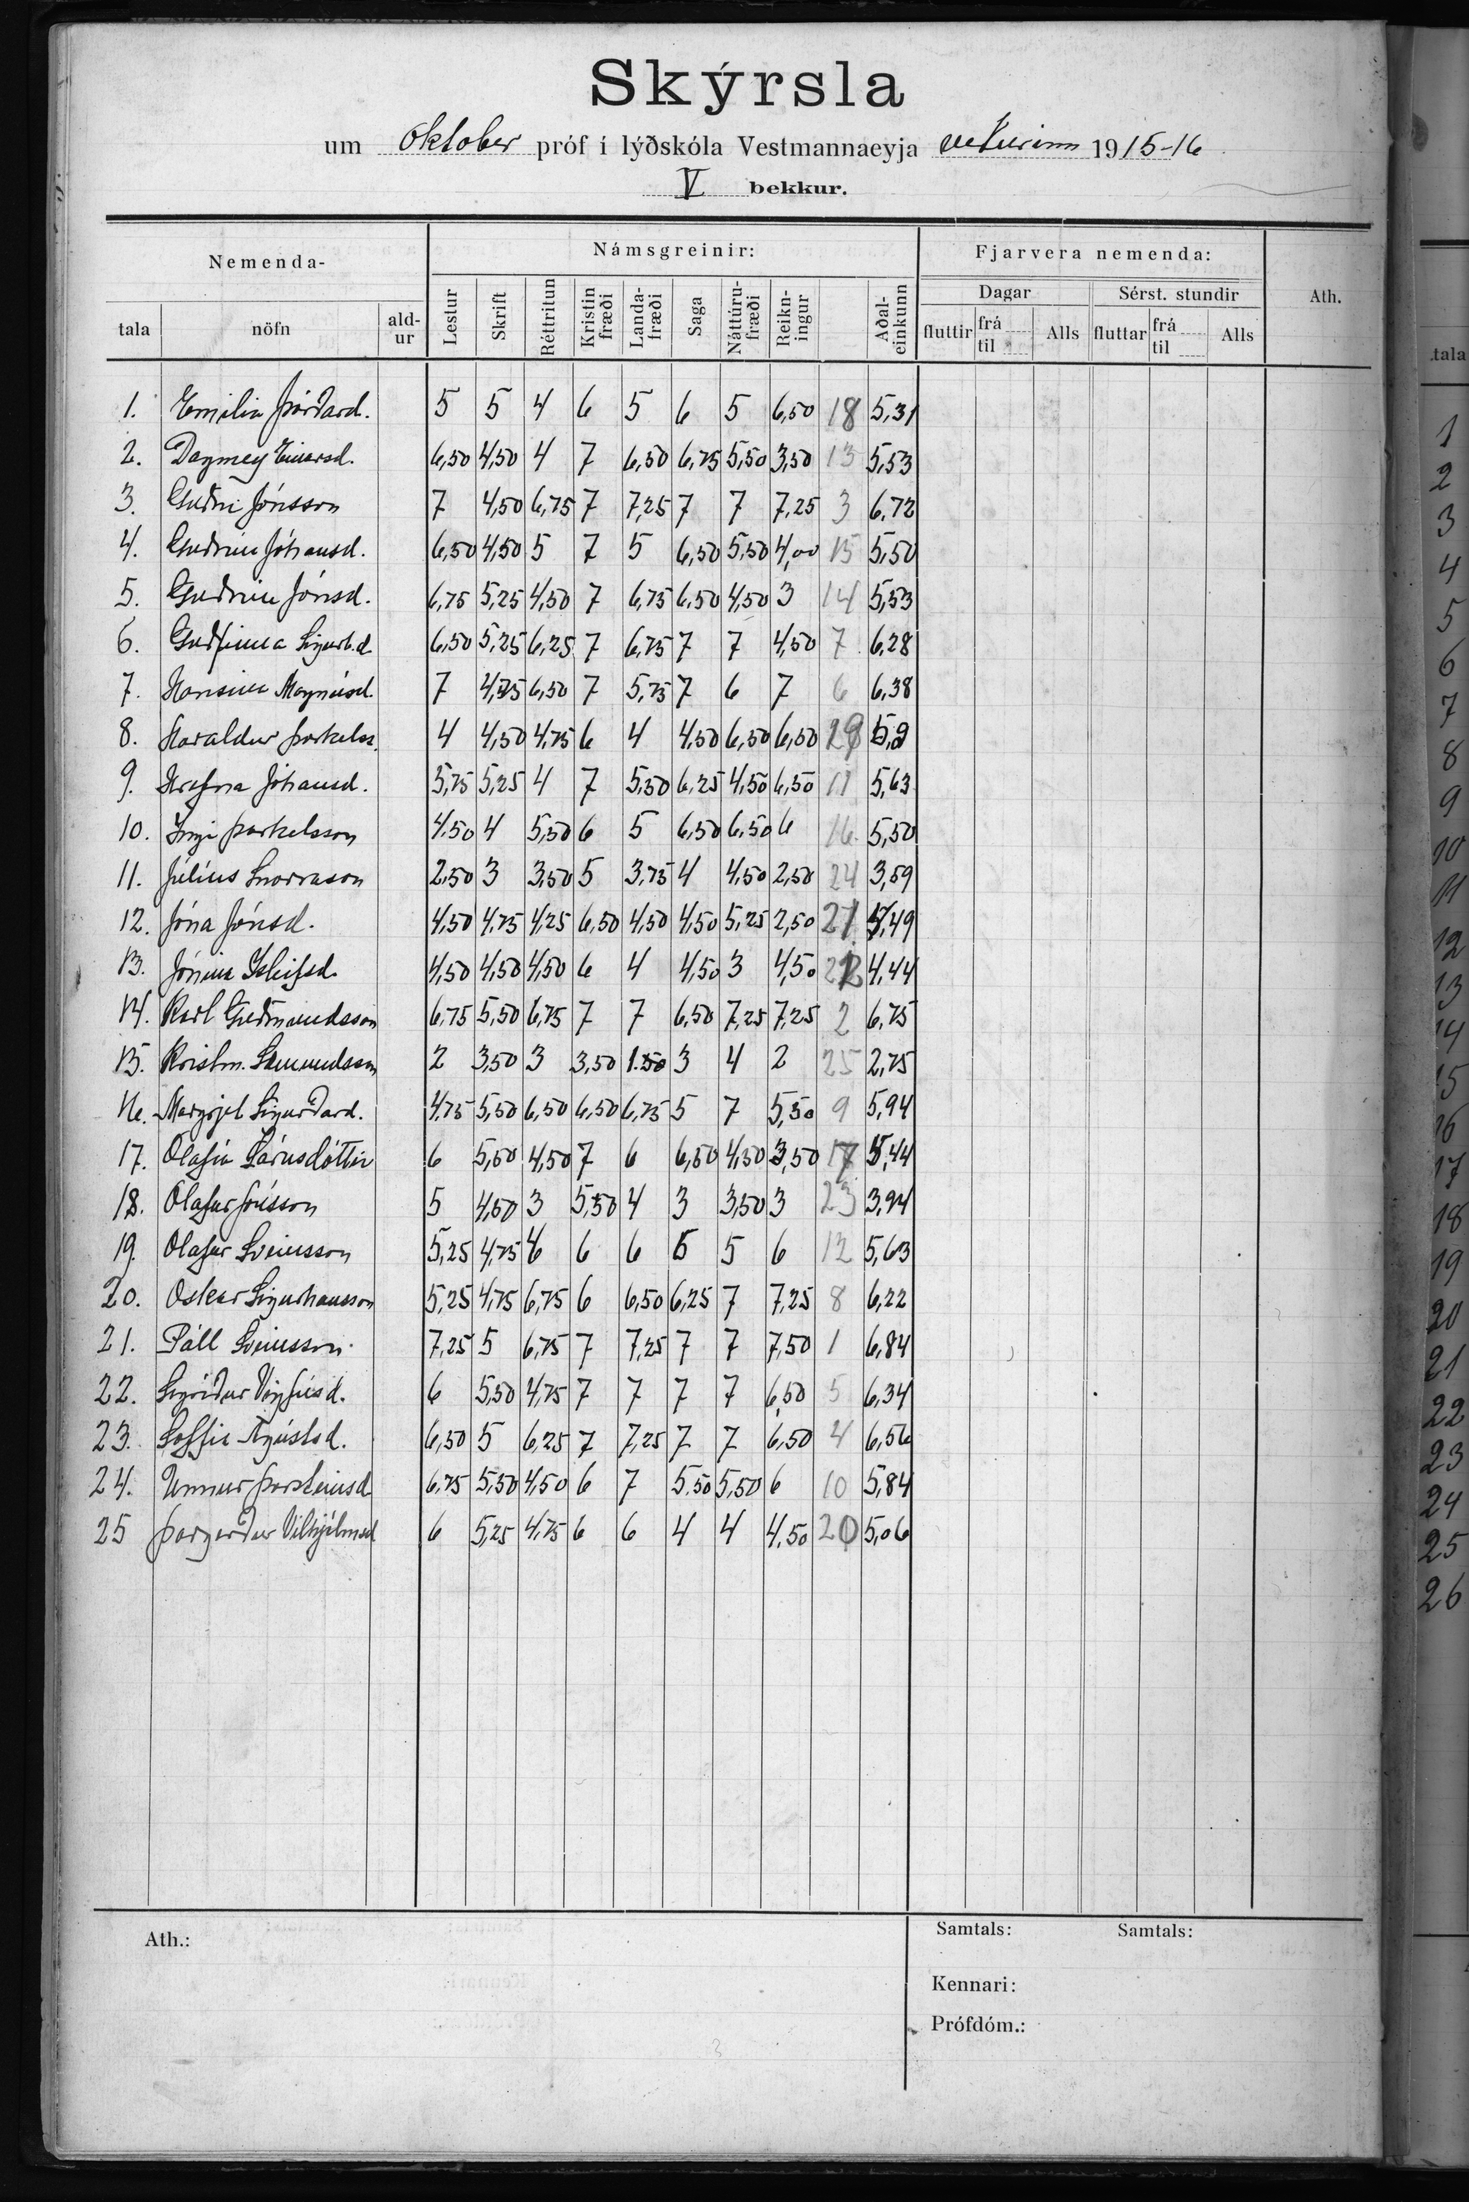 Skýrsla
um oktober próf í lýðskóla Vestmannaeyja veturinn 1915-16
V bekkur.
Nemenda- Námsgreinir: Fjarvera nemenda: Ath.
Dagar Sérst. stundir
tala nöfn ald-ur Lestur Skrift Réttritun Kristin fræði Landa-fræði Saga Náttúru-fræði Reikn-ingur Aðal-einkunn fluttir frá til Alls fluttar frá til Alls
1. Emilia Þórðard. 5 5 4 6 5 6 5 6,50 18 5,31
2. Dagmey Einarsd. 6,50 4,50 4 7 6,50 6,75 5,50 3,50 13 5,53
3. Guðni Jónsson 7 4,50 6,75 7 7,25 7 7 7,25 3 6,72
4. Guðrún Jóhansd. 6,50 4,50 5 7 5 6,50 5,50 4,00 15 5,50
5. Guðrún Jónsd. 6,75 5,25 4,50 7 6,75 6,50 4,50 3 14 5,53
6. Guðfinna Sigurb.d. 6,50 5,25 6,25 7 6,75 7 7 4,50 7 6,28
7. Hansína Magnúsd. 7 4,75 6,50 7 5,75 7 6 7 6 6,38
8. Haraldur Þorkelss. 4 4,50 4,75 6 4 4,50 6,50 6,50 5,9
9. Hrefna Jóhansd. 5,75 5,25 4 7 5,50 6,25 4,50 6,50 11 5,63
10. Ingi Þorkelsson 4,50 4 5,50 6 5 6,50 6,50 6 16 5,50
11. Július Snorrason 2,50 3 3,50 5 3,75 4 4,50 2,50 24 3,59
12. Jóna Jónsd. 4,50 4,75 4,25 6,50 4,50 4,50 5,25 2,50 21 4,49
13. Jónína Ísleifsd. 4,50 4,50 4,50 6 4 4,50 3 4,50 22 4,44
14. Karl Guðmundsson 6,75 5,50 6,75 7 7 6,50 7,25 7,25 2 6,75
15. Kristm. Sæmundsson 2 3,50 3 3,50 1.50 3 4 2 25 2,75
16. Margrjet Sigurðard. 4,75 5,50 6,50 6,50 6,75 5 7 5,50 9 5,94
17. Ólafía Lárusdóttir 6 5,50 4,50 7 6 6,50 4,50 3,50 17 5,44
18. Ólafur Jónsson 5 4,50 3 5,50 4 3 3,50 3 23 3,94
19. Ólafur Sveinsson 5,25 4,75 6 6 6 5 5 6 12 5,63
20. Oskar Sigurhansson 5,25 4,75 6,75 6 6,50 6,25 7 7,25 8 6,22
21. Páll Sveinsson. 7,25 5 6,75 7 7,25 7 7 7,50 1 6,84
22. Sigríður Vigfúsd. 6 5,50 4,75 7 7 7 7 6,50 5 6,34
23. Soffía Ágústsd. 6,50 5 6,25 7 7,25 7 7 6,50 4 6,56
24. Unnur Þorsteinsd. 6,75 5,50 4,50 6 7 5,50 5,50 6 10 5,84
25 Þorgerður Vilhjálmsd 6 5,25 4,75 6 6 4 4 4,50 20 5,06
Ath.:
Samtals: Samtals:
Kennari:
Prófdóm.:
tala
1
2
3
4
5
6
7
8
9
10
11
12
13
14
15
16
17
18
19
20
21
22
23
24
25
26